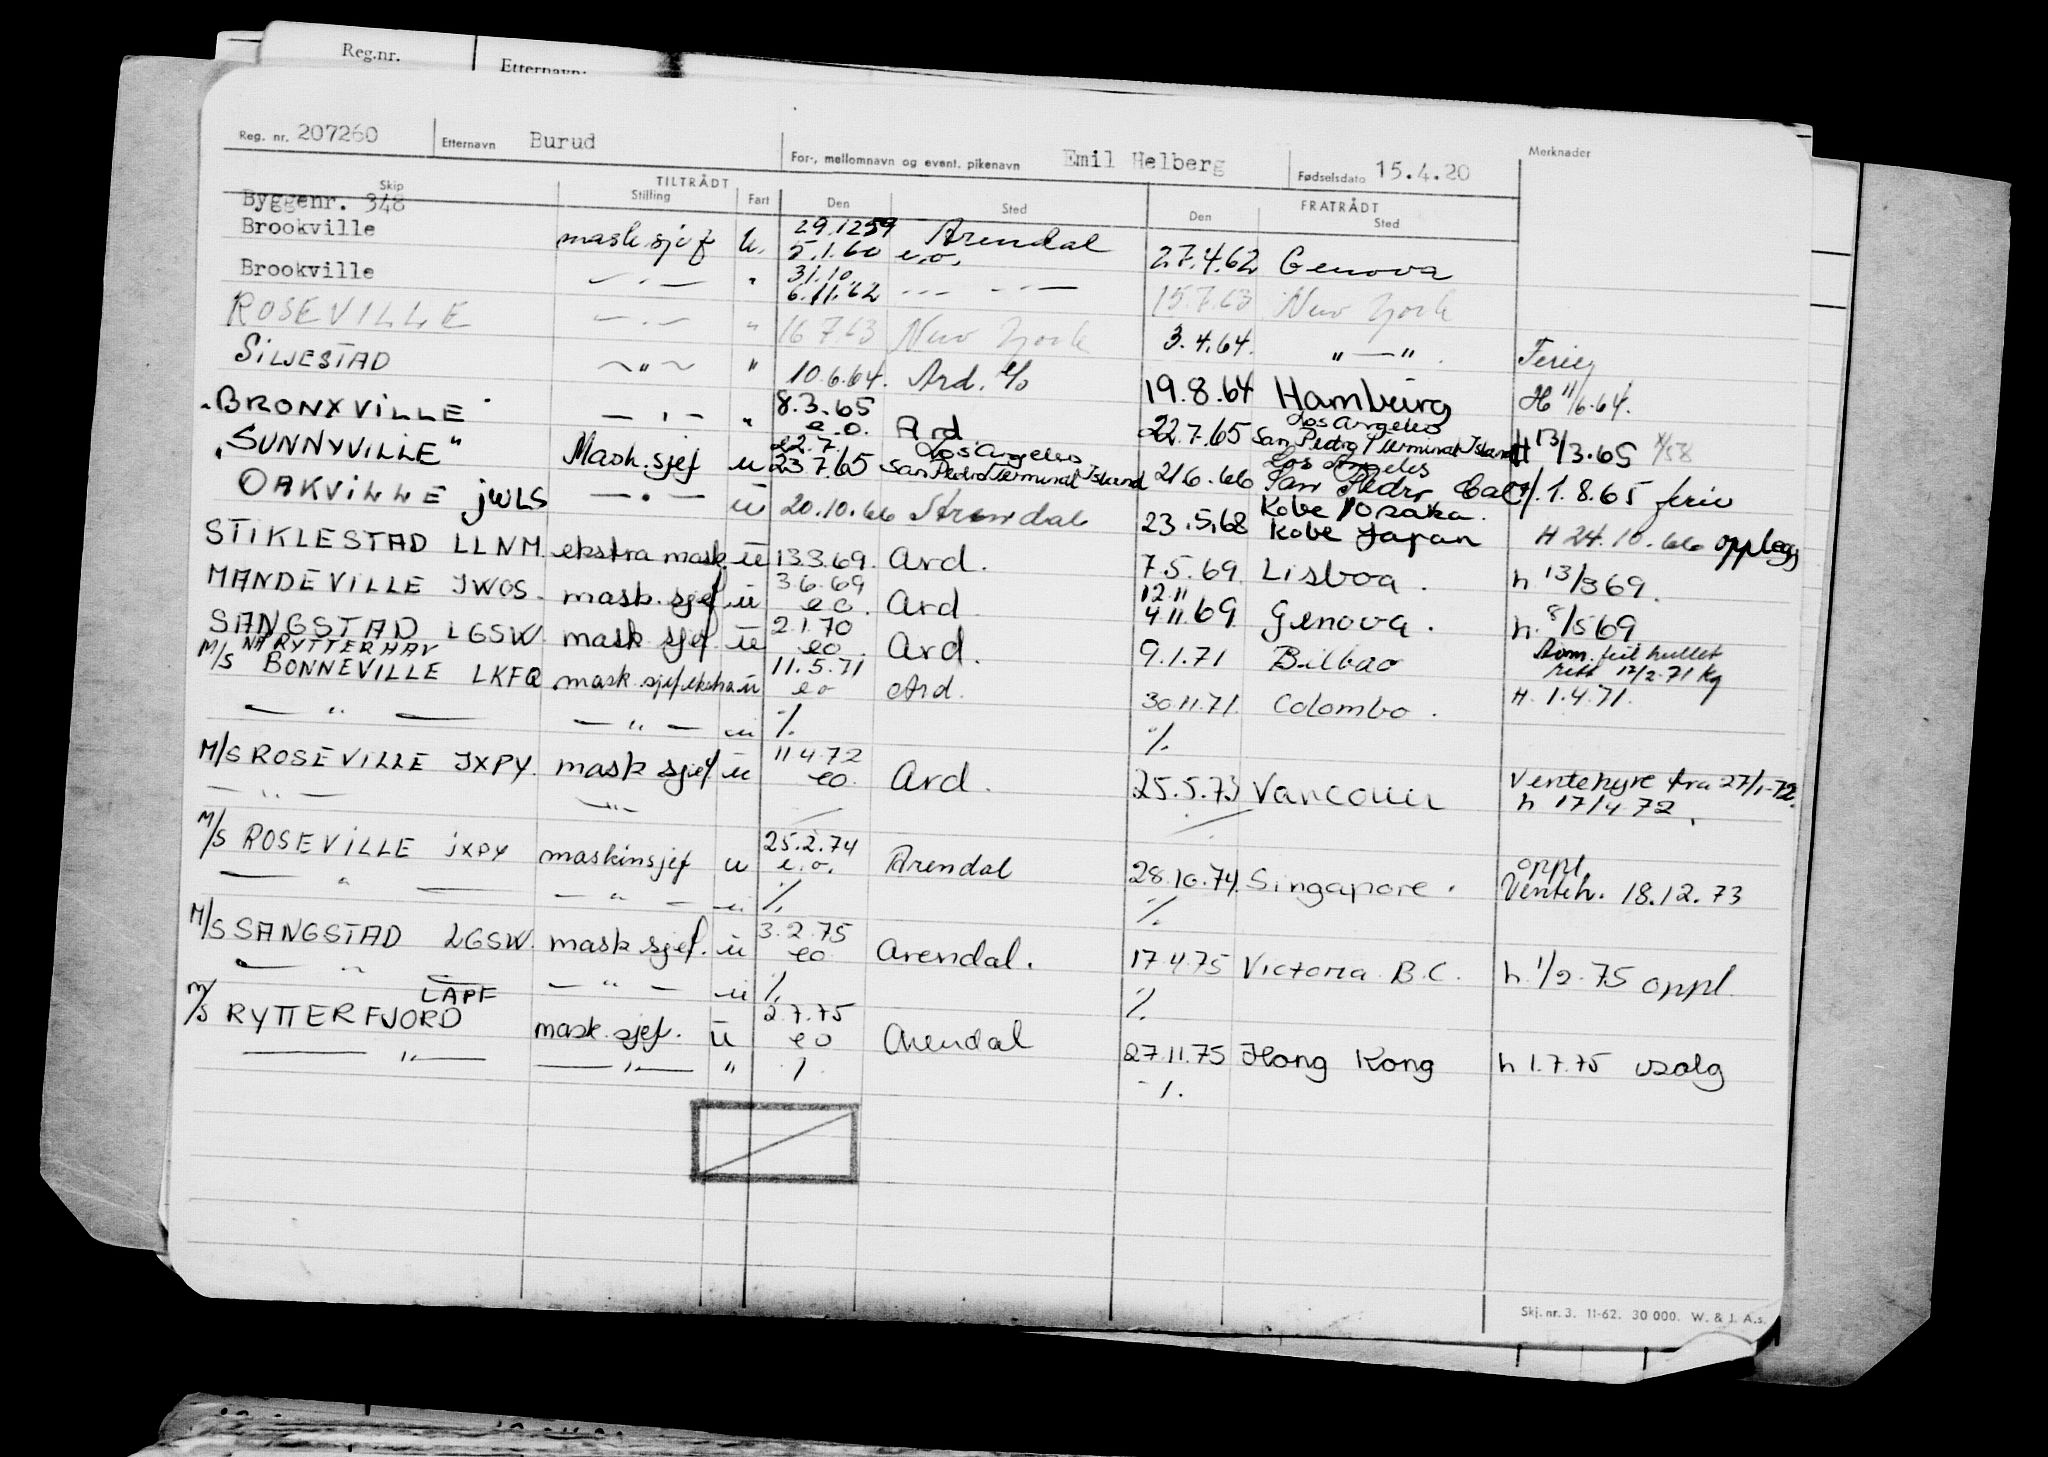 Reg.nr. Etternavn:
Reg. nr. 207260 Etternavn Burud For-, mellomnavn og event. pikenavn Emil Helberg Fødselsdato 15.4.20 Merknader
TILTRÅDT FRATRÅDT
Skip Stilling Fart Den Sted Den Sted
Byggenr. 348 29.12 59 Arendal
Brookville mask.sjef u. 5.1.60 e.o. 27.4.62 Genova
Brookville — . — " 31.10. 6.11.62 --- - - — 15.7.63 New York
ROSEVILLE — . — " 16.7.63 New York 3.4.64. " — " . Ferie
SILJESTAD ~ " ~ " 10.6.64. Ard. e/o 19.8.64 Hamburg H 11/6.64.
"BRONXVILLE" — , — " 8.3.65 e.o. Ard. 22.7.65 Los Angeles San Pedro Terminal Island H 13/3.65
"SUNNYVILLE" Mask.sjef u 22.7. 23.7.65 Los Angeles San Pedro Terminal Island 21.6.66 Los Angeles San Pedro Cal 1.8.65 ferie
OAKVILLE JWLS — . — u 20.10.66 Arendal 23.5.68 Kobe/Osaka. Kobe Japan H 24.10.66 opplegg
STIKLESTAD LLNM. ekstra mask. u 13.3.69. Ard. 7.5.69 Lisboa. h 13/3 69.
MANDEVILLE JWOS. mask.sjef u 3.6.69 eo. Ard 12.11 4.11.69 Genova. h. 8/5 69
SANGSTAD LGSW. mask sjef u 2.1.70 eo. Ard. 9.1.71 Bilbao
Rom. feil hullet rett 12/2.71 Kg
NÅ RYTTERHAV
M/S BONNEVILLE LKFQ mask.sjef ekstra u 11.5.71 eo Ard. 30.11.71. Colombo. H. 1.4.71.
— " — — " — u % %
M/S ROSEVILLE JXPY. mask sjef u 11.4.72 eo. Ard. 25.5.73 Vancouver Ventehyre fra 27/1-72. h 17/4 72.
— " — — " — /
M/S ROSEVILLE JXPY maskinsjef u 25.2.74 e.o. Arendal 28.10.74. Singapore. oppl Venteh. 18.12.73
— " — — " — u % %
M/S SANGSTAD LGSW. mask sjef. u 3.2.75 eo Arendal. 17.4.75 Victoria B.C. h. 1/2.75 oppl.
— " — — " — u % %
M/S RYTTERFJORD LAPF mask.sjef. u 2.7.75 eo Arendal 27.11.75 Hong Kong h 1.7.75 usolg
— " — — " — " % %
Skj. nr. 3. 11-62. 30 000. W. & J. A.s.